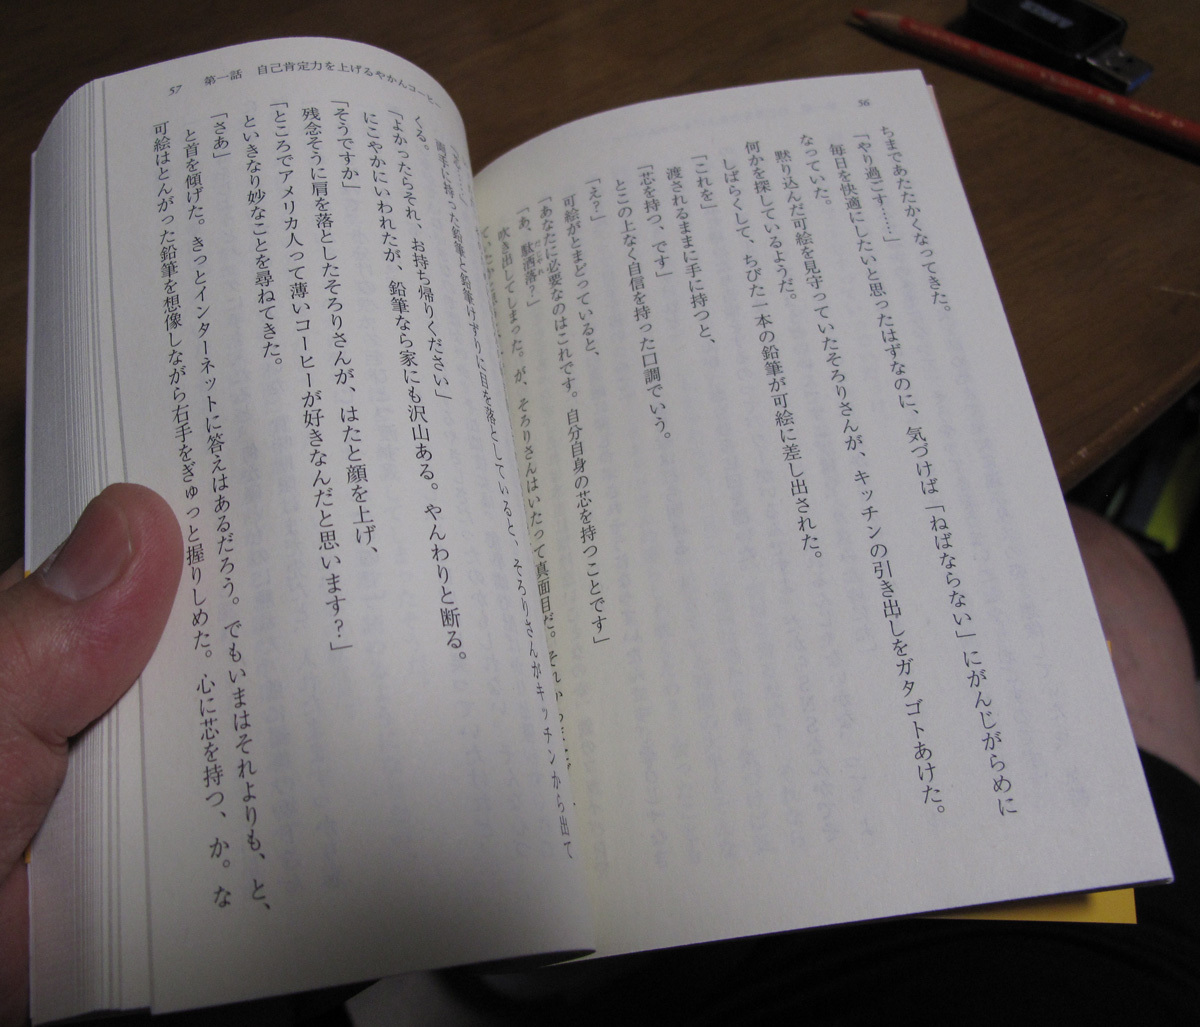 56
ちまであたたかくなってきた。
「やり過ごす……」
毎日を快適にしたいと思ったはずなのに、気づけば「ねばならない」にがんじがらめに
なっていた。
黙り込んだ可絵を見守っていたそろりさんが、キッチンの引き出しをガタゴトあけた。
何かを探しているようだ。
しばらくして、ちびた一本の鉛筆が可絵に差し出された。
「これを」
渡されるままに手に持つと、
「芯を持つ、です」
とこの上なく自信を持った口調でいう。
「え？」
可絵がとまどっていると、
「あなたに必要なのはこれです。自分自身の芯を持つことです」
「あ、駄洒落？」
吹き出してしまった。が、そろりさんはいたって真面目だ。
57 第一話 自己肯定力を上げるやかんコーヒー
両手に持った鉛筆と鉛筆けずりに目を落としていると、そろりさんがキッチンから出て
くる。
「よかったらそれ、お持ち帰りください」
にこやかにいわれたが、鉛筆なら家にも沢山ある。やんわりと断る。
「そうですか」
残念そうに肩を落としたそろりさんが、はたと顔を上げ、
「ところでアメリカ人って薄いコーヒーが好きなんだと思います？」
といきなり妙なことを尋ねてきた。
「さあ」
と首を傾げた。きっとインターネットに答えはあるだろう。でもいまはそれよりも、と、
可絵はとんがった鉛筆を想像しながら右手をぎゅっと握りしめた。心に芯を持つ、か。な